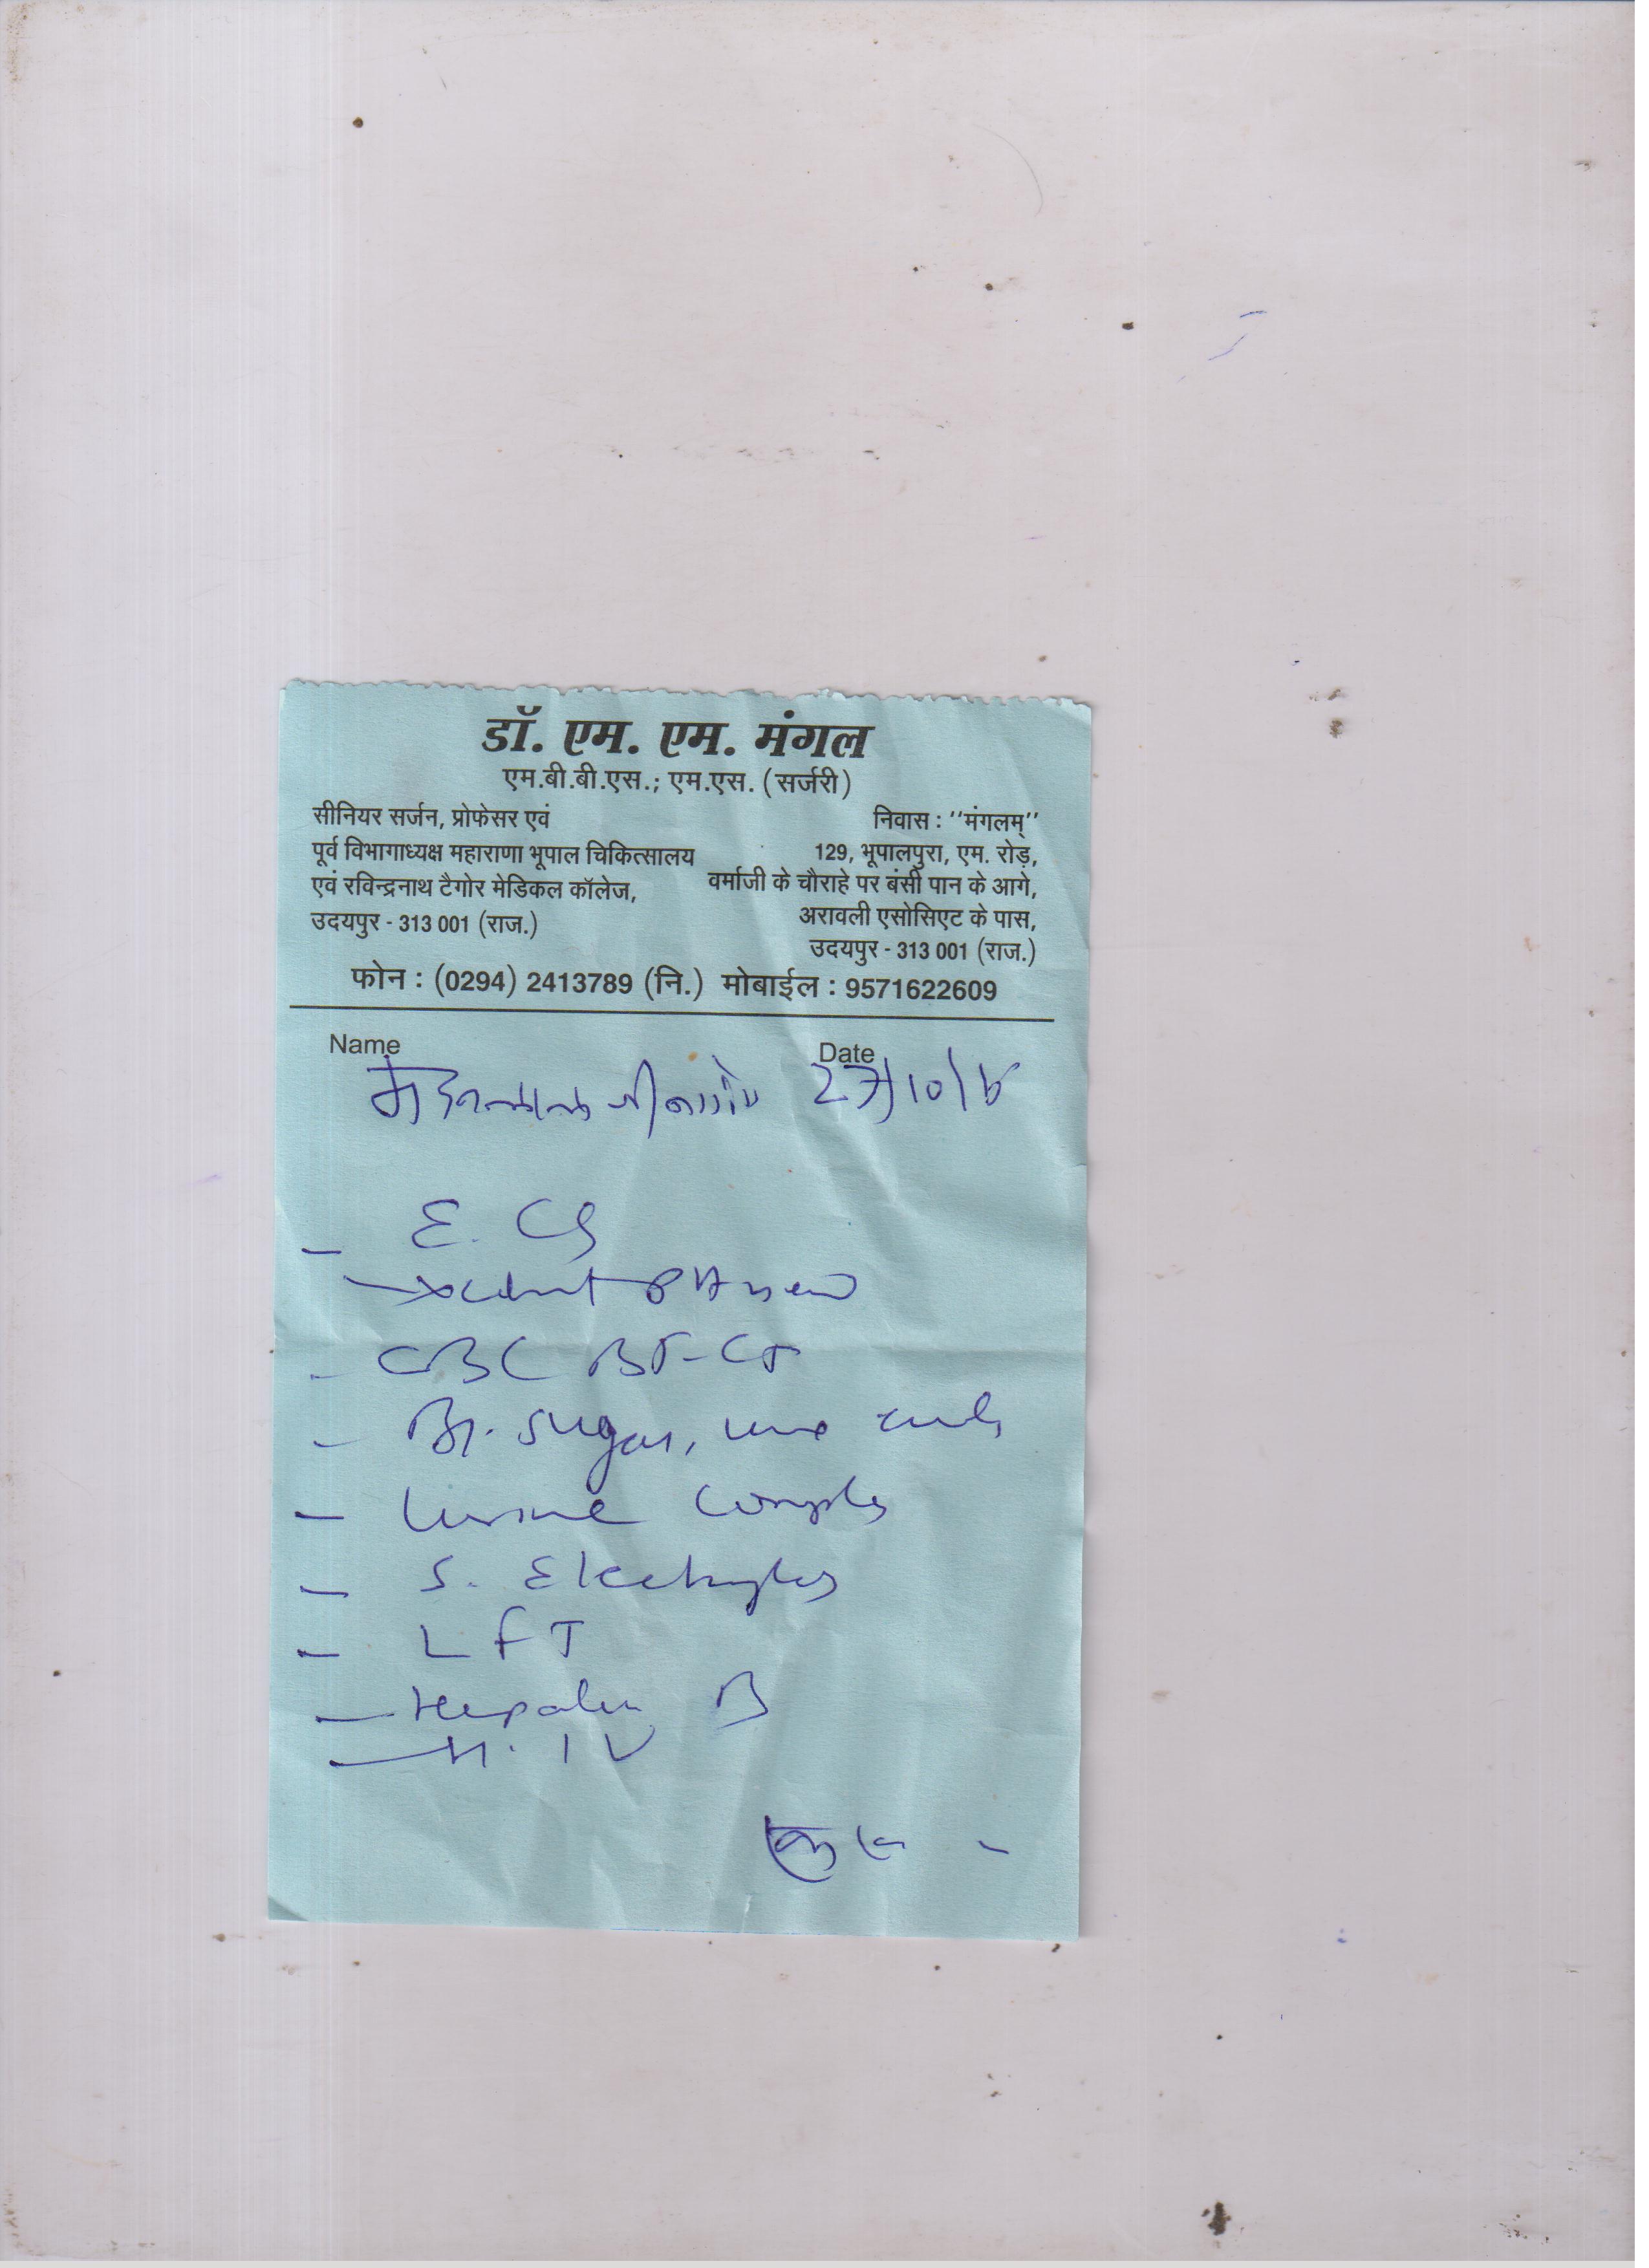 डॉ. एम. एम. मंगल
एम.बी.बी.एस.; एम.एस. (सर्जरी)
सीनियर सर्जन, प्रोफेसर एवं
पूर्व विभागाध्यक्ष महाराणा भूपाल चिकित्सालय
एवं रविन्द्रनाथ टैगोर मेडिकल कॉलेज,
उदयपुर - 313 001 (राज.)
निवास : ''मंगलम्''
129, भूपालपुरा, एम. रोड़,
वर्माजी के चौराहे पर बंसी पान के आगे,
अरावली एसोसिएट के पास,
उदयपुर - 313 001 (राज.)
फोन : (0294) 2413789 (नि.) मोबाईल : 9571622609
Name Date
27/10/
- E. CG
- CBC BT-CT
- Bl. Sugar,
- Urine Complete
- S. Electrolytes
- LFT
- Hepatitis B
- H. I V